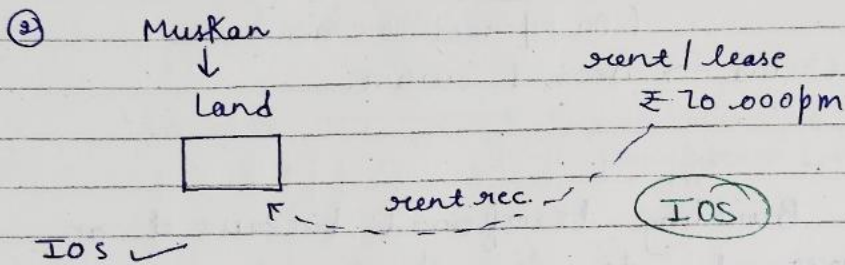 ② Muskan
↓
Land
rent / lease
₹ 20.000pm
rent rec.
IOS
IOS ✓